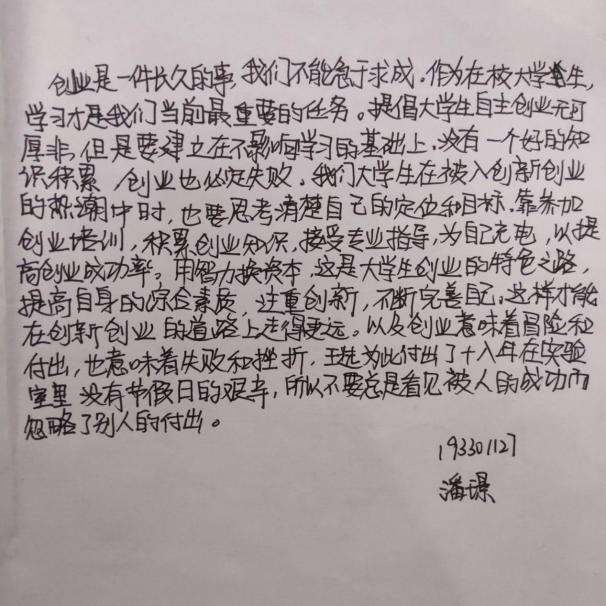 创业是一件长久的事，我们不能急于求成。作为在校大学生，
学习才是我们当前最重要的任务。提倡大学生自主创业无可
厚非，但是要建立在不影响学习的基础上，没有一个好的知
识积累 创业也必定失败。我们大学生在投入创新创业
的热潮中时，也要思考清楚自己的定位和目标。靠参加
创业培训，积累创业知识，接受专业指导，为自己充电，以提
高创业成功率。用智力换资本，这是大学生创业的特色之路，
提高自身的综合素质，注重创新，不断完善自己，这样才能
在创新创业的道路上走得更远。以及创业意味着冒险和
付出，也意味着失败和挫折，王选为此付出了十八年在实验
室里 没有节假日的艰辛，所以不要总是看见被人的成功而
忽略了别人的付出。
193301127
潘璟